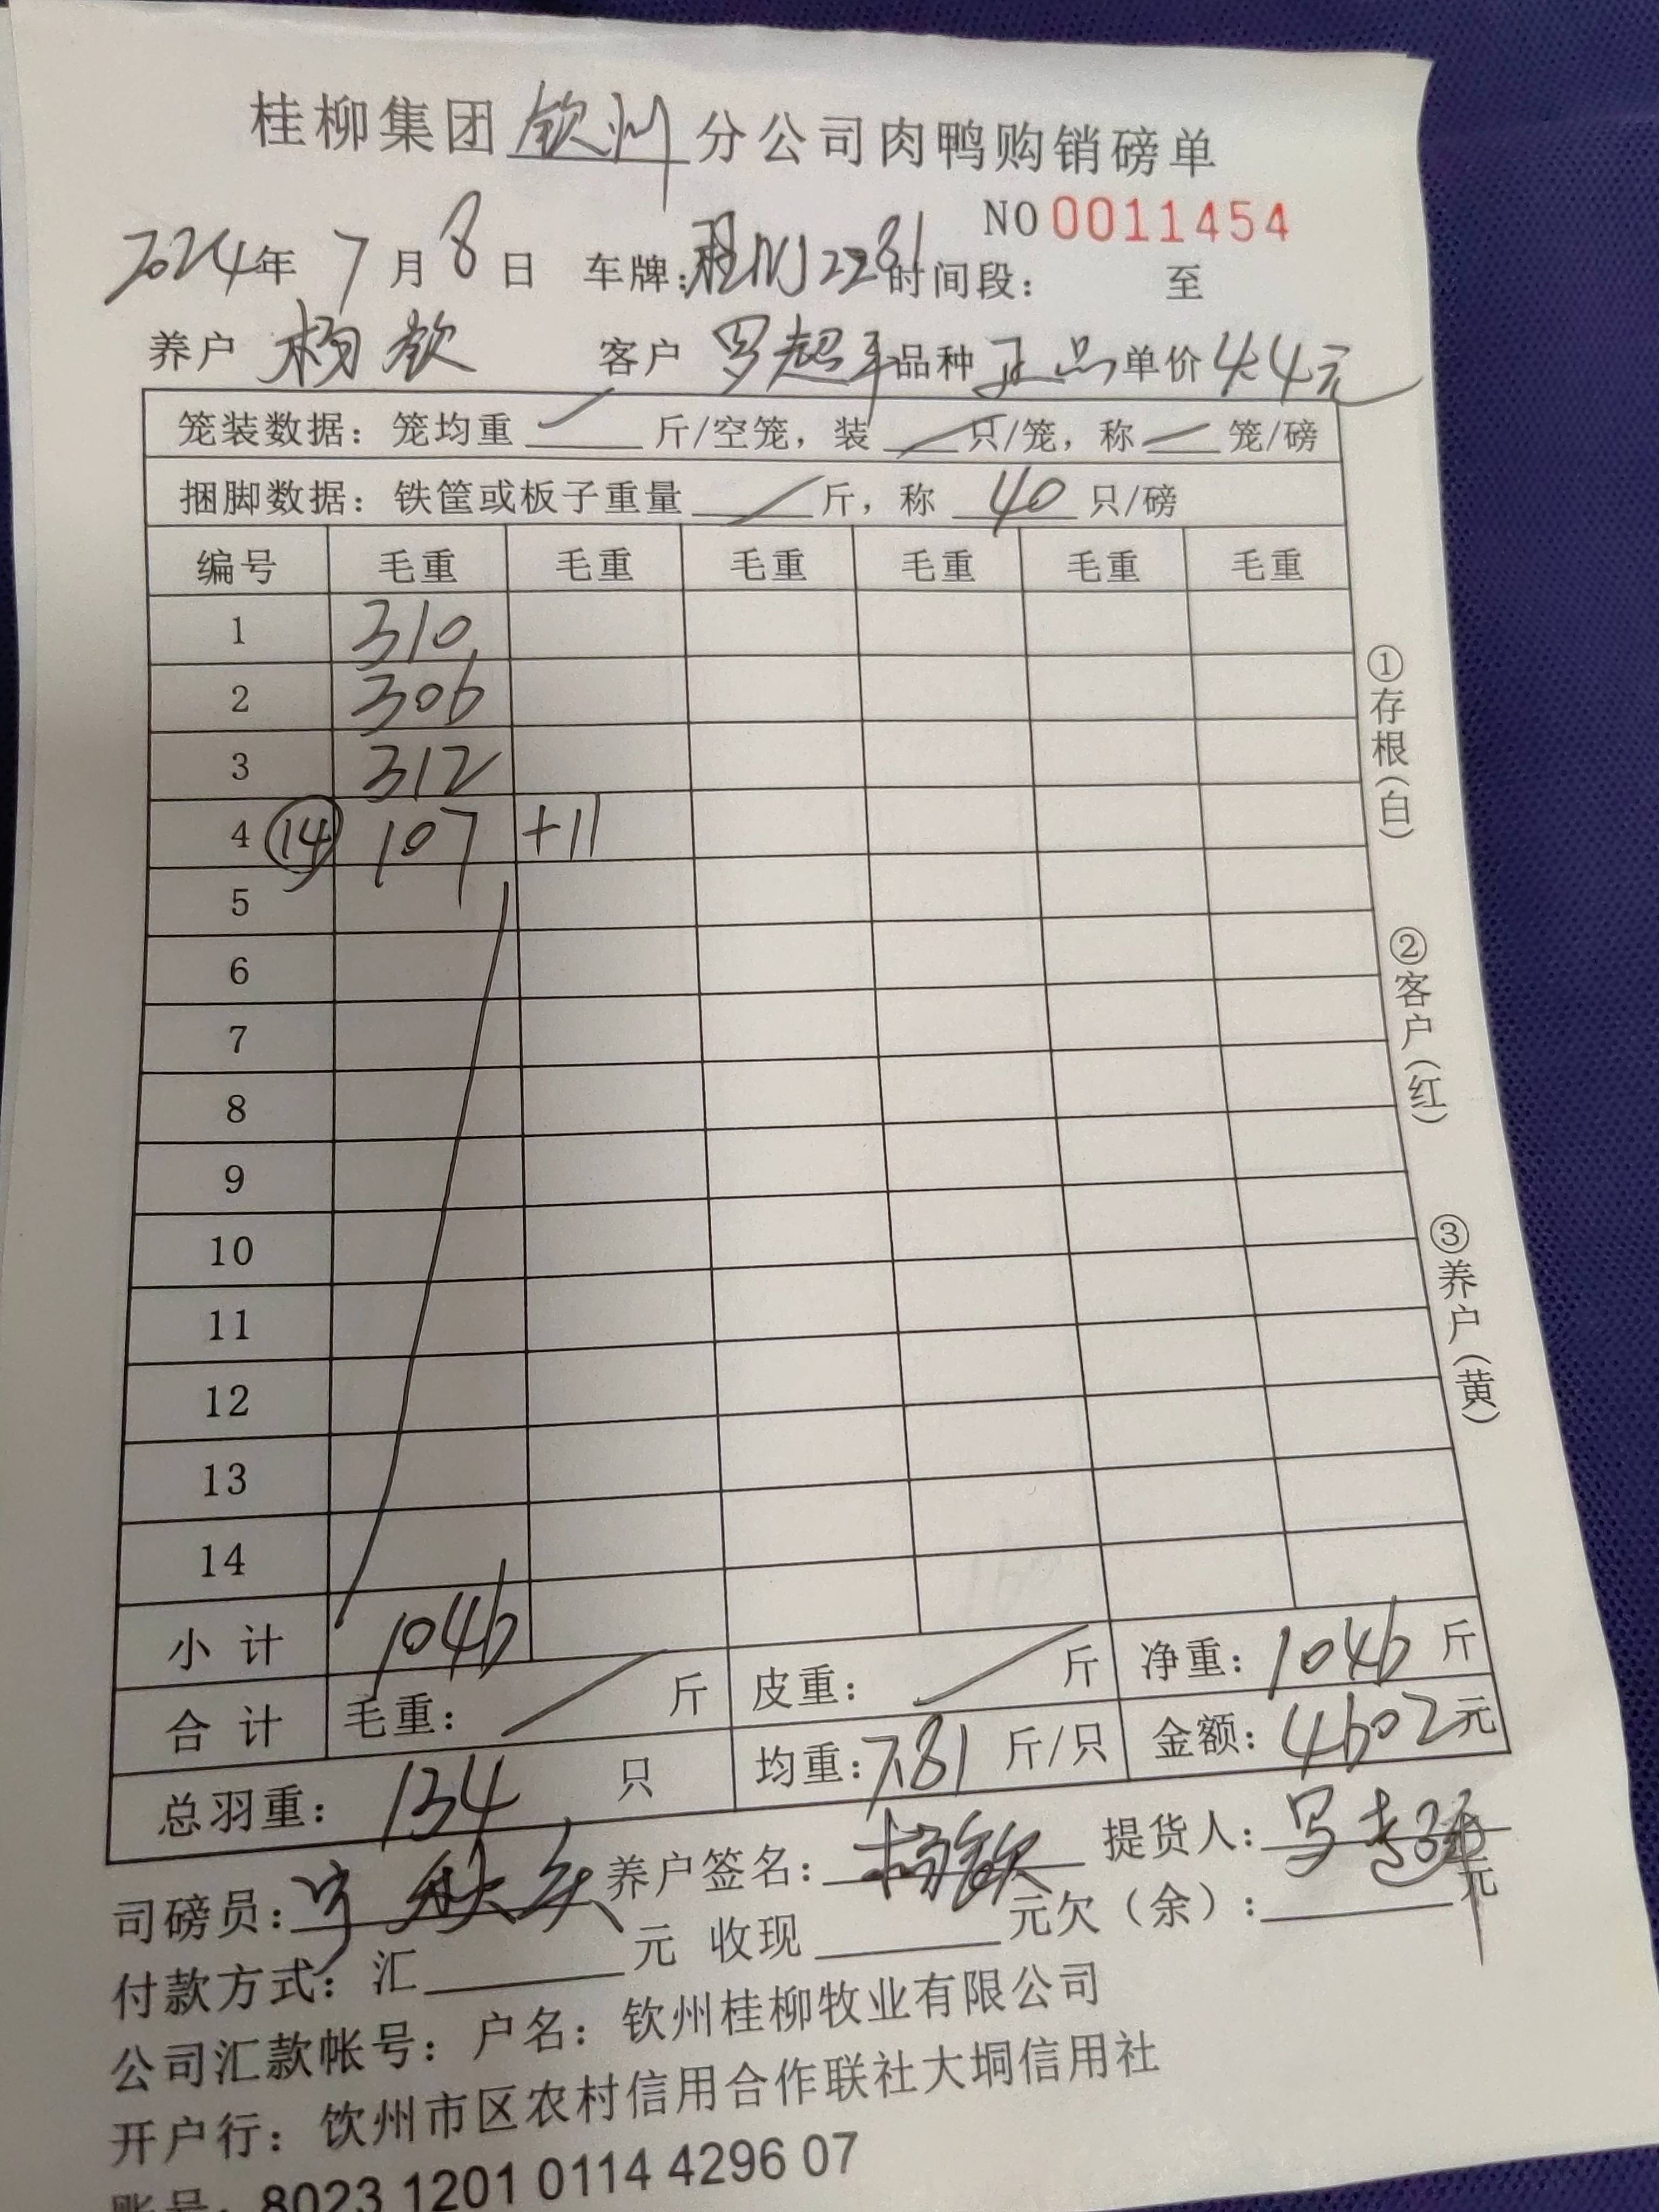 桂柳集团钦州分公司肉鸭购销磅单
NO 0011454
2024年 7月 8日 车牌: 2281 时间段: 至
养户 杨钦 客户 罗超军 品种 正品 单价 4.4元
笼装数据: 笼均重 / 斤/空笼, 装 / 只/笼, 称 / 笼/磅
捆脚数据: 铁筐或板子重量 / 斤, 称 40 只/磅
编号 毛重 毛重 毛重 毛重 毛重 毛重
1 310
2 306
3 312
4 ⑭ 107 +11
5
6
7
8
9
10
11
12
13
14
小计 1046
合计 毛重: / 斤 皮重: / 斤 净重: 1046 斤
总羽重: 134 只 均重: 7.81 斤/只 金额: 4602元
①存根(白)
②客户(红)
③养户(黄)
司磅员: 养户签名: 杨钦 提货人:
付款方式: 汇 元 收现 元欠(余): 元
公司汇款帐号: 户名: 钦州桂柳牧业有限公司
开户行: 钦州市区农村信用合作联社大垌信用社
账号: 8023 1201 0114 4296 07